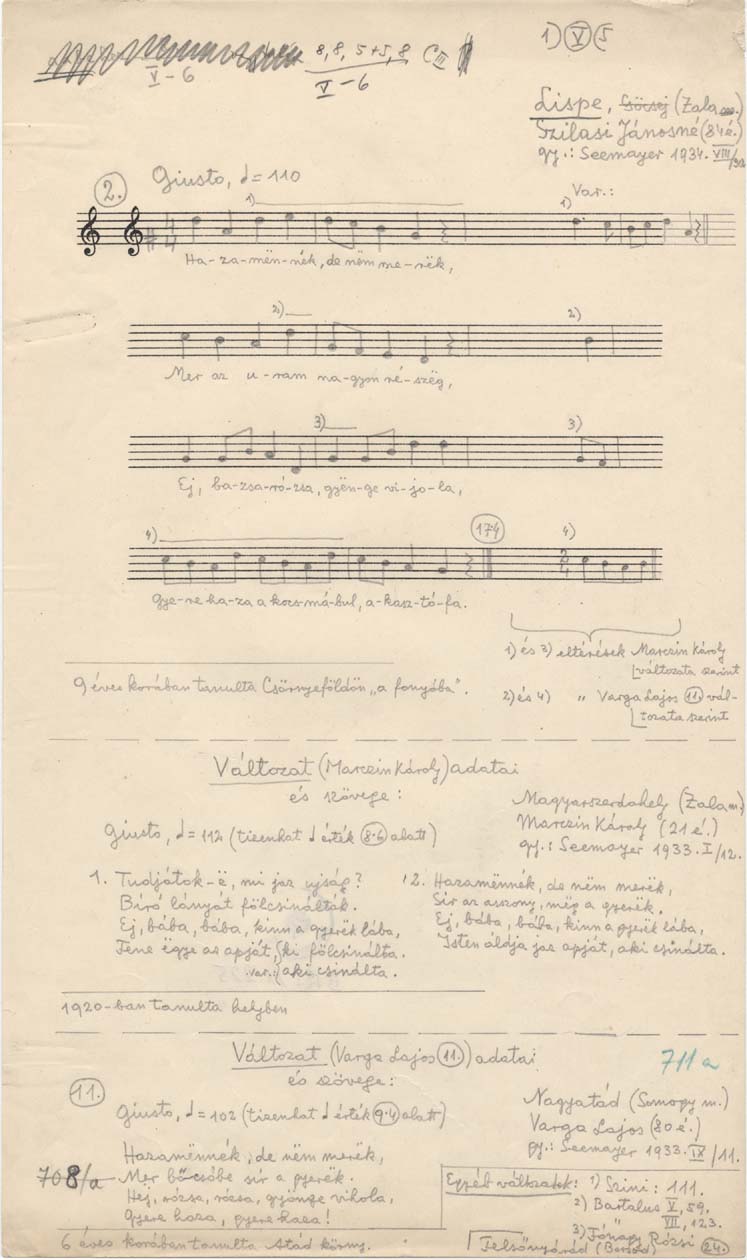 8, 8, 5+5, 8 CIII
V-6
V-6
1) V (5
Lispe, Göcsej (Zala m.)
Szilasi Jánosné (84 é.)
gy.: Seemayer 1934. VIII/30
2. Giusto, ♩= 110
1) Var.: 1)
Ha-za-mën-nék, de nëm me-rëk,
2) 2)
Mer az u-ram na-gyon ré-szëg,
3) 3)
Ej, ba-zsa-ró-zsa, gyën-ge vi-jo-la,
4) 174 4)
Gye-re ha-za a kocs-má-bul, a-kasz-tó-fa.
1) és 3) eltérések Marczin Károly
változata szerint
2) és 4) " Varga Lajos 11. vál-
tozata szerint
9 éves korában tanulta Csörnyeföldön „a fonyóba".
Változat (Marczin Károly) adatai
és szövege:
Magyarszerdahely (Zala m.)
Marczin Károly (21 é.)
gy.: Seemayer 1933. I/12.
Giusto, ♩= 112 (tizenhat ♩ érték 8·6 alatt)
1. Tudjátok-ë, mi jaz ujság?
Biró lányát fölcsinálták.
Ej, bába, bába, kinn a gyerëk lába,
Tene ëgye az apját, ki fölcsinálta.
var.: aki csinálta.
2. Hazamënnék, de nëm merëk,
Sír az asszony, mëg a gyerëk.
Ej, bába, bába, kinn a gyerëk lába,
Isten áldja jaz apját, aki csinálta.
1920-ban tanulta helyben
Változat (Varga Lajos 11.) adatai
és szövege:
711a
11.
Giusto, ♩= 102 (tizenhat ♩ érték 9·4 alatt)
Nagyatád (Somogy m.)
Varga Lajos (80 é.)
gy.: Seemayer 1933. IX/11.
Hazamënnék, de nëm merëk,
708/a Mer bőcsőbe sír a gyerëk.
Hej, rózsa, rózsa, gyönge vihola,
Gyere haza, gyere haza!
6 éves korában tanulta Atád körny.
Egyéb változatok: 1) Szini: 111.
2) Bartalus V, 59.
" VII, 123.
3) Jónagy Rózsi
Felsőnyárád (Borsod) 24.